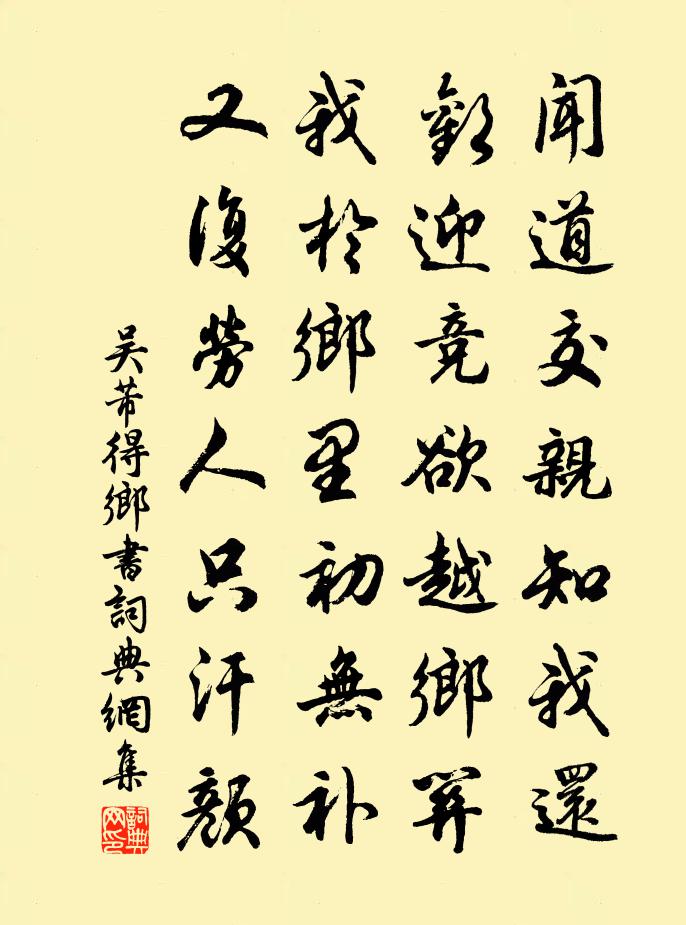 聞道交親知我還
歡迎竞欲越鄉關
我於鄉里初無補
又復勞人只汗顏
吳芾得鄉書詞典網集
詞典网印